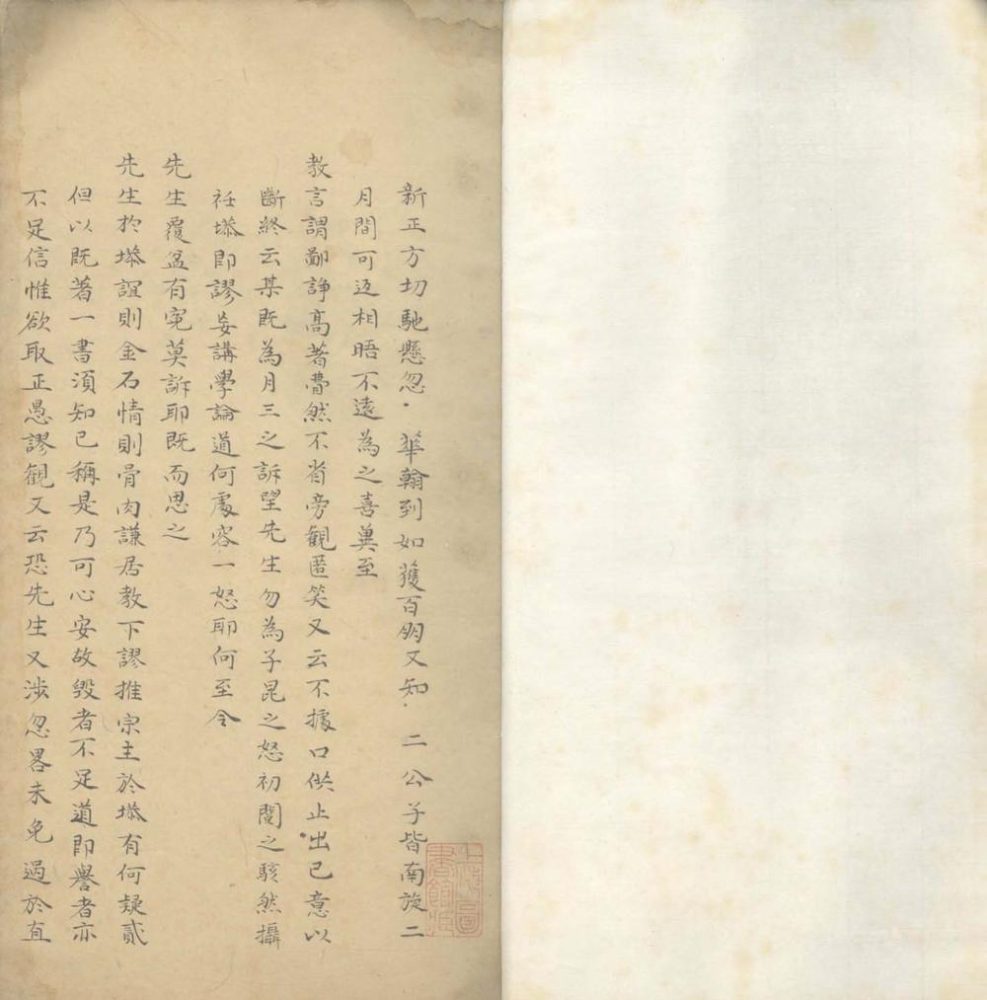 新正方切馳懸忽華翰到如獲百朋又知二公子皆南旋二
月間可返相晤不遠為之喜冀至
教言謂鄙諍高著夢然不省旁觀匿笑又云不據口供止出己意以
斷終云某既為月三之訴望先生勿為子昆之怒初閱之駭然攝
衽塨即謬妄講學論道何處容一怒耶何至令
先生覆盆有寃莫訴耶既而思之
先生於塨誼則金石情則骨肉謙居教下謬推宗主於塨有何疑貳
但以既著一書須知己稱是乃可心安故毀者不足道即譽者亦
不足信惟欲取正愚謬觀又云恐先生又涉忽畧未免過於直
上海圖書館藏